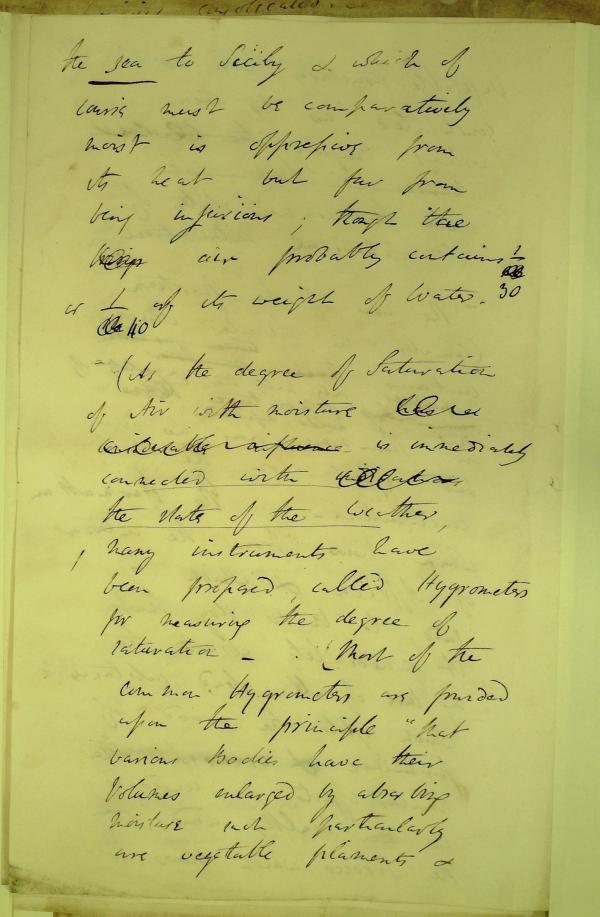 the sea to Sicily & which of
course must be comparatively
moist is oppressive from
its heat but far from
being injurious ; though thee
air probably contains 1/30
or 1/40 of its weight of Water.
(As the degree of Saturation
of Air with moisture
considerable influence is immediately
connected with
the state of the Weather,
, many instruments have
been prepared, called Hygrometers
for measuring the degree of
saturation - (Most of the
common Hygrometers are founded
upon the principle "that
various Bodies have their
Volumes enlarged by absorbing
moisture such particularly
are vegetable filaments &